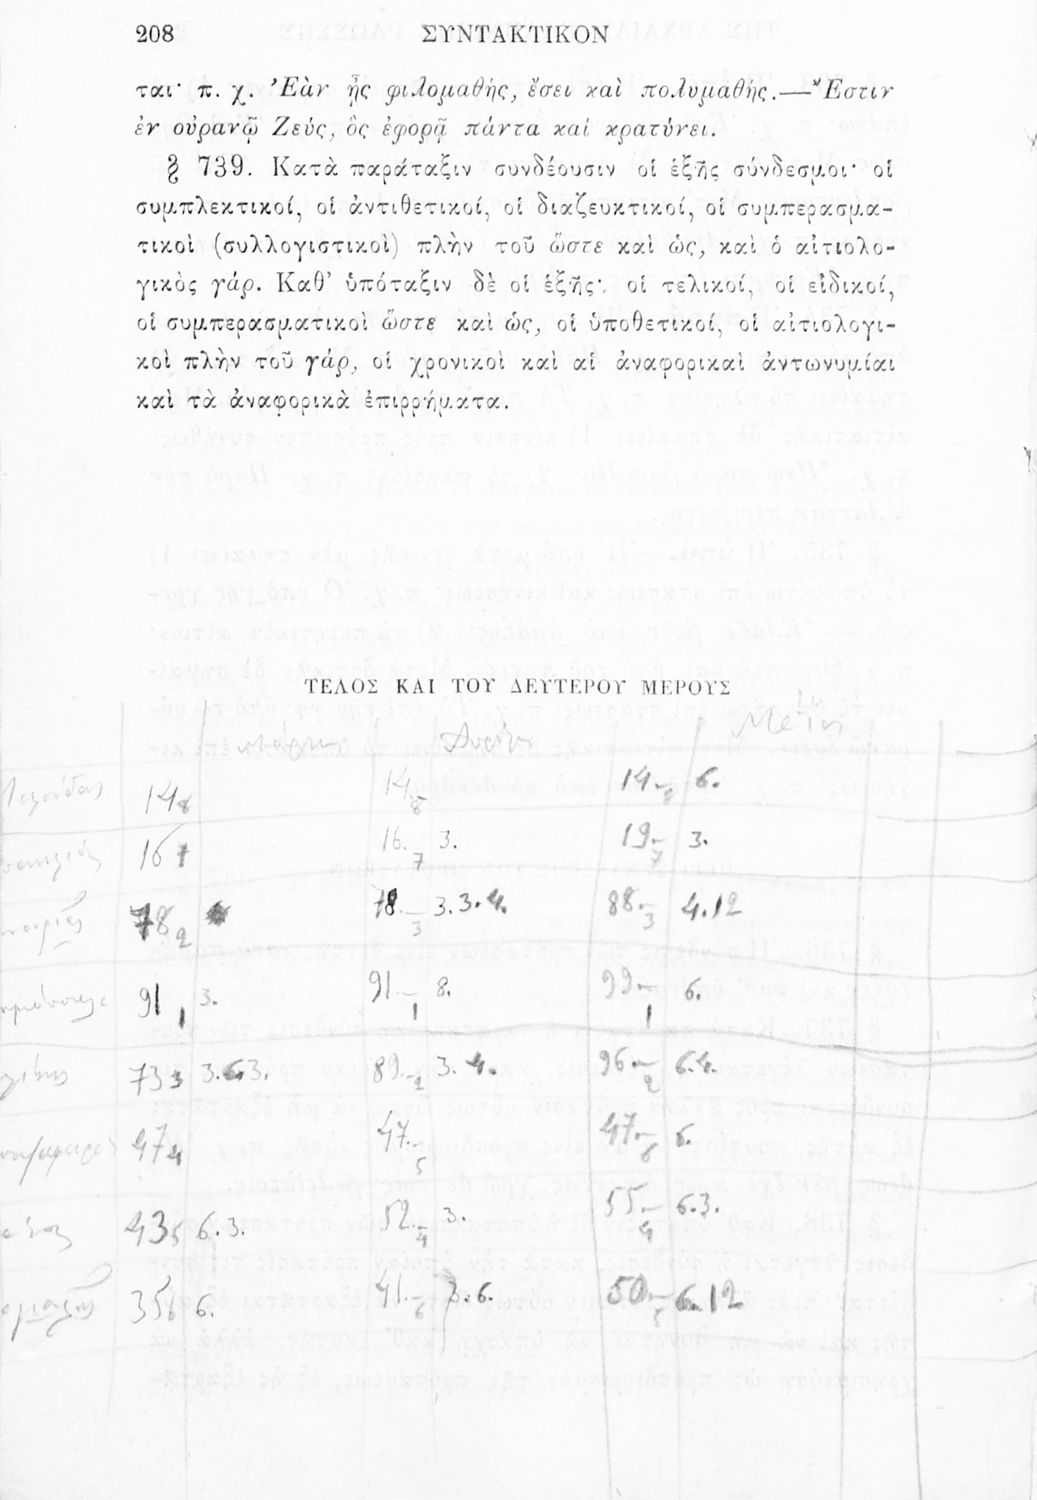 208 ΣΥΝΤΑΚΤΙΚΟΝ
ται· π. χ. Ἐὰν ᾖς φιλομαθής, ἔσει καὶ πολυμαθής.—Ἔστιν
ἐν οὐρανῷ Ζεύς, ὃς ἐφορᾷ πάντα καὶ κρατύνει.
§ 739. Κατὰ παράταξιν συνδέουσιν οἱ ἑξῆς σύνδεσμοι· οἱ
συμπλεκτικοί, οἱ ἀντιθετικοί, οἱ διαζευκτικοί, οἱ συμπερασμα-
τικοὶ (συλλογιστικοὶ) πλὴν τοῦ ὥστε καὶ ὡς, καὶ ὁ αἰτιολο-
γικὸς γάρ. Καθ’ ὑπόταξιν δὲ οἱ ἑξῆς· οἱ τελικοί, οἱ εἰδικοί,
οἱ συμπερασματικοὶ ὥστε καὶ ὡς, οἱ ὑποθετικοί, οἱ αἰτιολογι-
κοὶ πλὴν τοῦ γάρ, οἱ χρονικοὶ καὶ αἱ ἀναφορικαὶ ἀντωνυμίαι
καὶ τὰ ἀναφορικὰ ἐπιρρήματα.
ΤΕΛΟΣ ΚΑΙ ΤΟΥ ΔΕΥΤΕΡΟΥ ΜΕΡΟΥΣ
14 8 14 8 14 8 6.
16 7 16. 7 3. 19 7 3.
78 2 78 3 3.3.4. 88 3 4.12
91 1 3. 91 1 8. 99 1 6.
73 3 3.6.3. 89 2 3.4. 96 2 6.4.
47 4 47 5 47 6 6.
43 5 6.3. 52 4 3. 55 4 6.3.
35 6 6. 41 6 3.6. 50 6.12